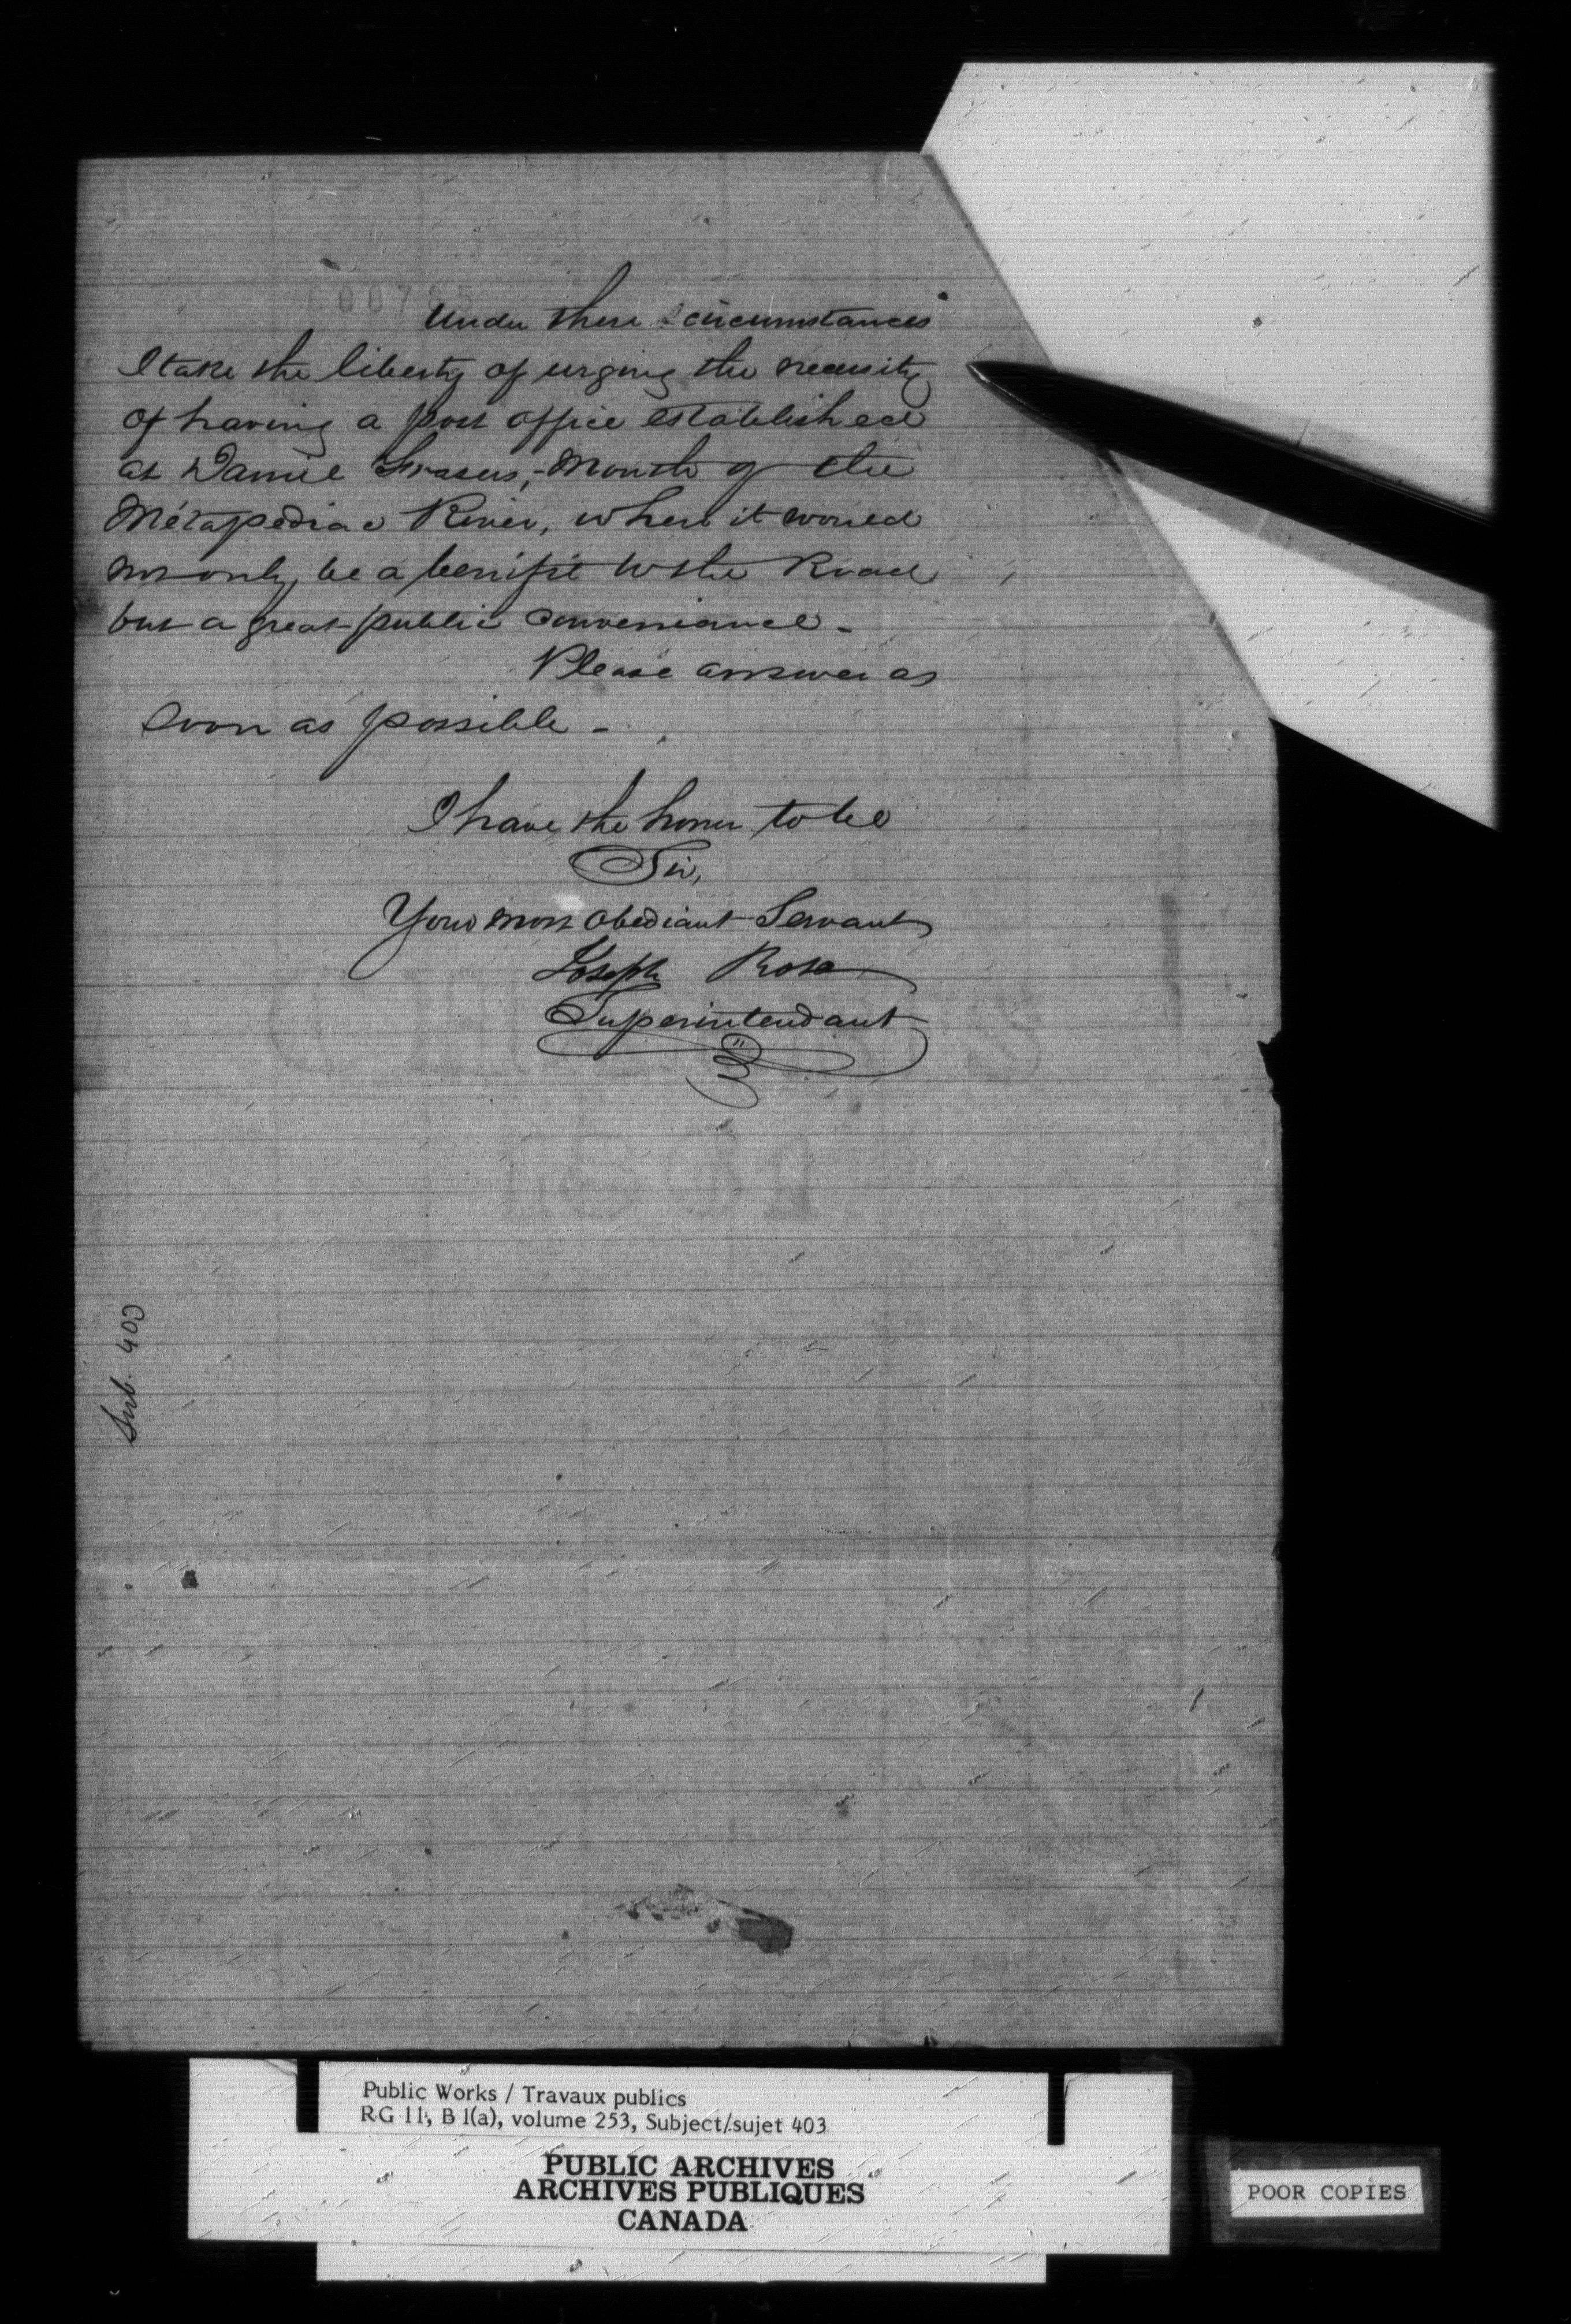 Under these circumstances
I take the liberty of urging the necessity
of having a post office established
at Daniel Frasers, - Mouth of the
Métapediac River, where it would
not only be a benifit to the Road
but a great public conveniance -
Please answer as
soon as possible -
I have the honor to be
Sir,
Your most obediant Servant
Joseph Rosa
Superintendant
Sub. 403
Public Works / Travaux publics
RG 11, B 1(a), volume 253, Subject/sujet 403
PUBLIC ARCHIVES
ARCHIVES PUBLIQUES
CANADA
POOR COPIES